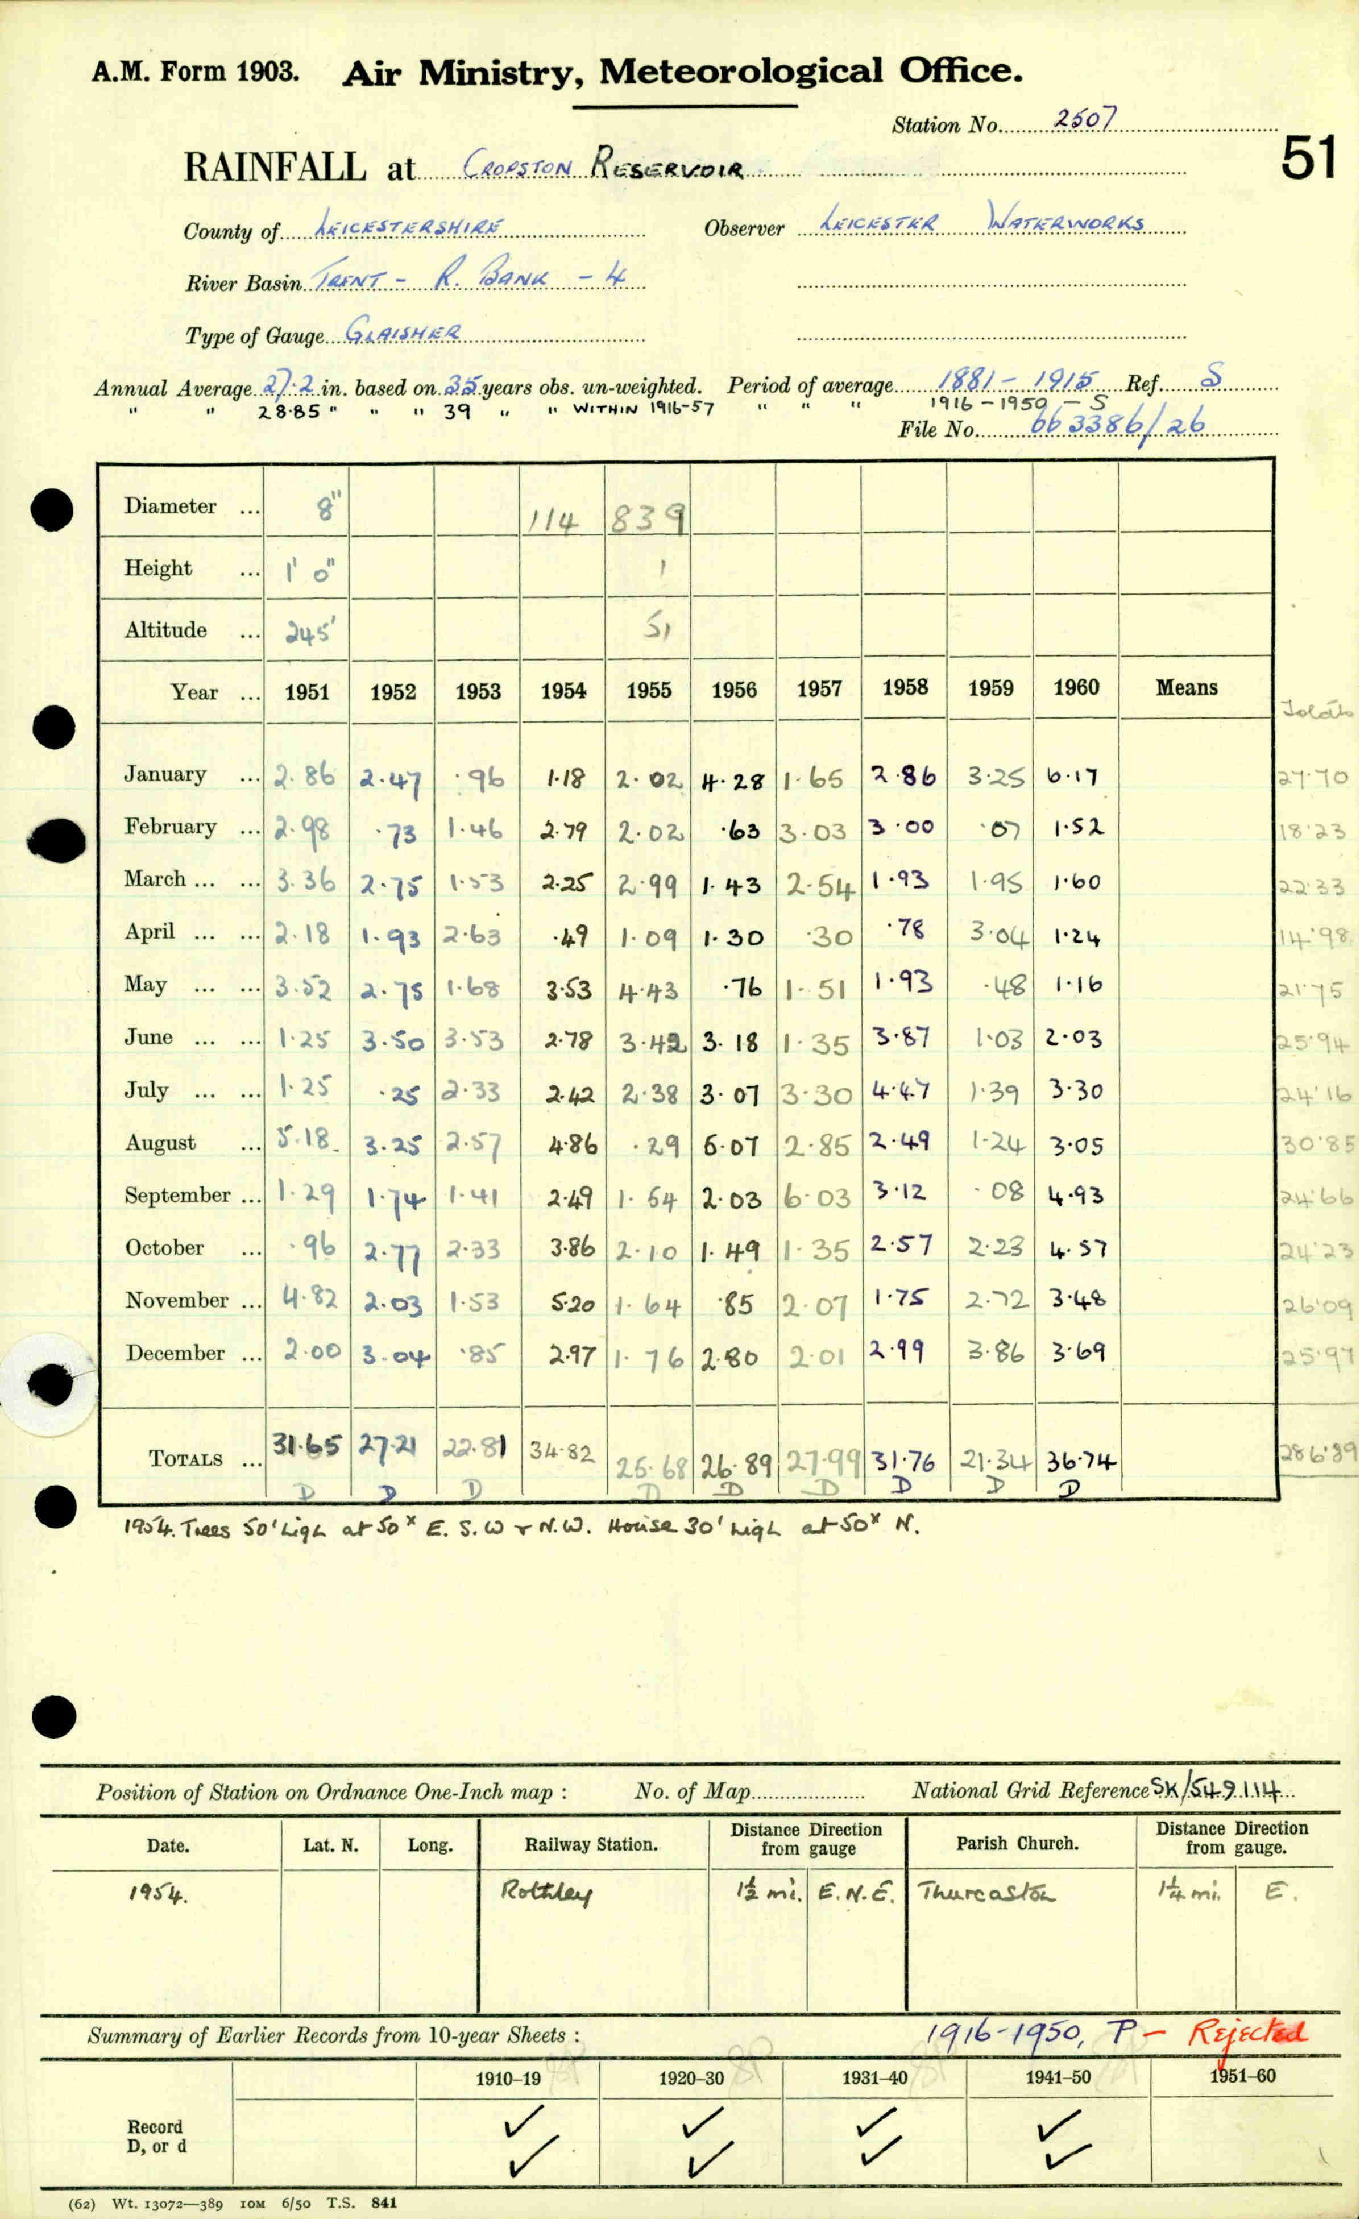 A.M. Form 1903. Air Ministry, Meteorological Office.
Station No. 2507
51
RAINFALL at CROPSTON RESERVOIR
County of LEICESTERSHIRE Observer LEICESTER WATERWORKS
River Basin TRENT - R. BANK - 4
Type of Gauge GLAISHER
Annual Average 27.2 in. based on 35 years obs. un-weighted. Period of average 1881 - 1915 Ref. S
" " 28.85 " " " 39 " " WITHIN 1916-57 " " " 1916 - 1950 - S
File No. 663386/26
Diameter ... 8" 114 839
Height ... 1' 0" 1
Altitude ... 245' 51
Year ... 1951 1952 1953 1954 1955 1956 1957 1958 1959 1960 Means Totals
January ... 2.86 2.47 .96 1.18 2.02 4.28 1.65 2.86 3.25 6.17 27.70
February ... 2.98 .73 1.46 2.79 2.02 .63 3.03 3.00 .07 1.52 18.23
March ... ... 3.36 2.75 1.53 2.25 2.99 1.43 2.54 1.93 1.95 1.60 22.33
April ... ... 2.18 1.93 2.63 .49 1.09 1.30 .30 .78 3.04 1.24 14.98
May ... ... 3.52 2.75 1.68 3.53 4.43 .76 1.51 1.93 .48 1.16 21.75
June ... ... 1.25 3.50 3.53 2.78 3.42 3.18 1.35 3.87 1.03 2.03 25.94
July ... ... 1.25 .25 2.33 2.42 2.38 3.07 3.30 4.47 1.39 3.30 24.16
August ... 5.18 3.25 2.57 4.86 .29 6.07 2.85 2.49 1.24 3.05 30.85
September ... 1.29 1.74 1.41 2.49 1.54 2.03 6.03 3.12 .08 4.93 24.66
October ... .96 2.77 2.33 3.86 2.10 1.49 1.35 2.57 2.23 4.57 24.23
November ... 4.82 2.03 1.53 5.20 1.64 .85 2.07 1.75 2.72 3.48 26.09
December ... 2.00 3.04 .85 2.97 1.76 2.80 2.01 2.99 3.86 3.69 25.97
TOTALS ... 31.65 27.21 22.81 34.82 25.68 26.89 27.99 31.76 21.34 36.74 286.89
D D D D D D D D D
1954. Trees 50' high at 50x E. S. W & N.W. House 30' high at 50x N.
Position of Station on Ordnance One-Inch map : No. of Map National Grid Reference SK/549114
Date. Lat. N. Long. Railway Station. Distance Direction from gauge Parish Church. Distance Direction from gauge.
1954. Rothley 1½ mi. E.N.E. Thurcaston 1¼ mi. E.
Summary of Earlier Records from 10-year Sheets : 1916-1950, P - Rejected
1910–19 1920–30 1931–40 1941–50 1951–60
Record ✓ ✓ ✓ ✓
D, or d ✓ ✓ ✓ ✓
(62) Wt. 13072—389 10M 6/50 T.S. 841